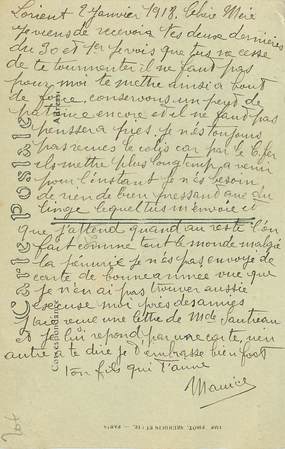 Lorient 2 Janvier 1918. Chère Mère
Je viens de recevoir tes deux dernières
du 30 et 1er je vois que tu ne cesse
de te tourmenter il ne faut pas
pour moi te mettre ainsi a bout
de force, conservons un peu de
patience encore et il ne faut pas
pensser a pres. Je n'ai toujours
pas recue le colis car par le C. fer
ils mettre plus longtemp a venir
pour l'instant je n'ai besoin
de rien de bien pressand que du
linge lequel tu m'envoie et
que j'attend quand au reste l'on
fait comme tout le monde malgré
la penurie je n'ai pas envoyé de
carte de bonne année vue que
je n'en ai pas trouver aussie
escuse moi près des amies
ai recue une lettre de Mde Sautreau
je lui repond par une carte, rien
autre a te dire je t'embrasse bien fort
ton fils qui t'aime
Maurice
Carte Postale
Correspondance
Adresse
IMP. PHOT. NEURDEIN ET Cie. — PARIS